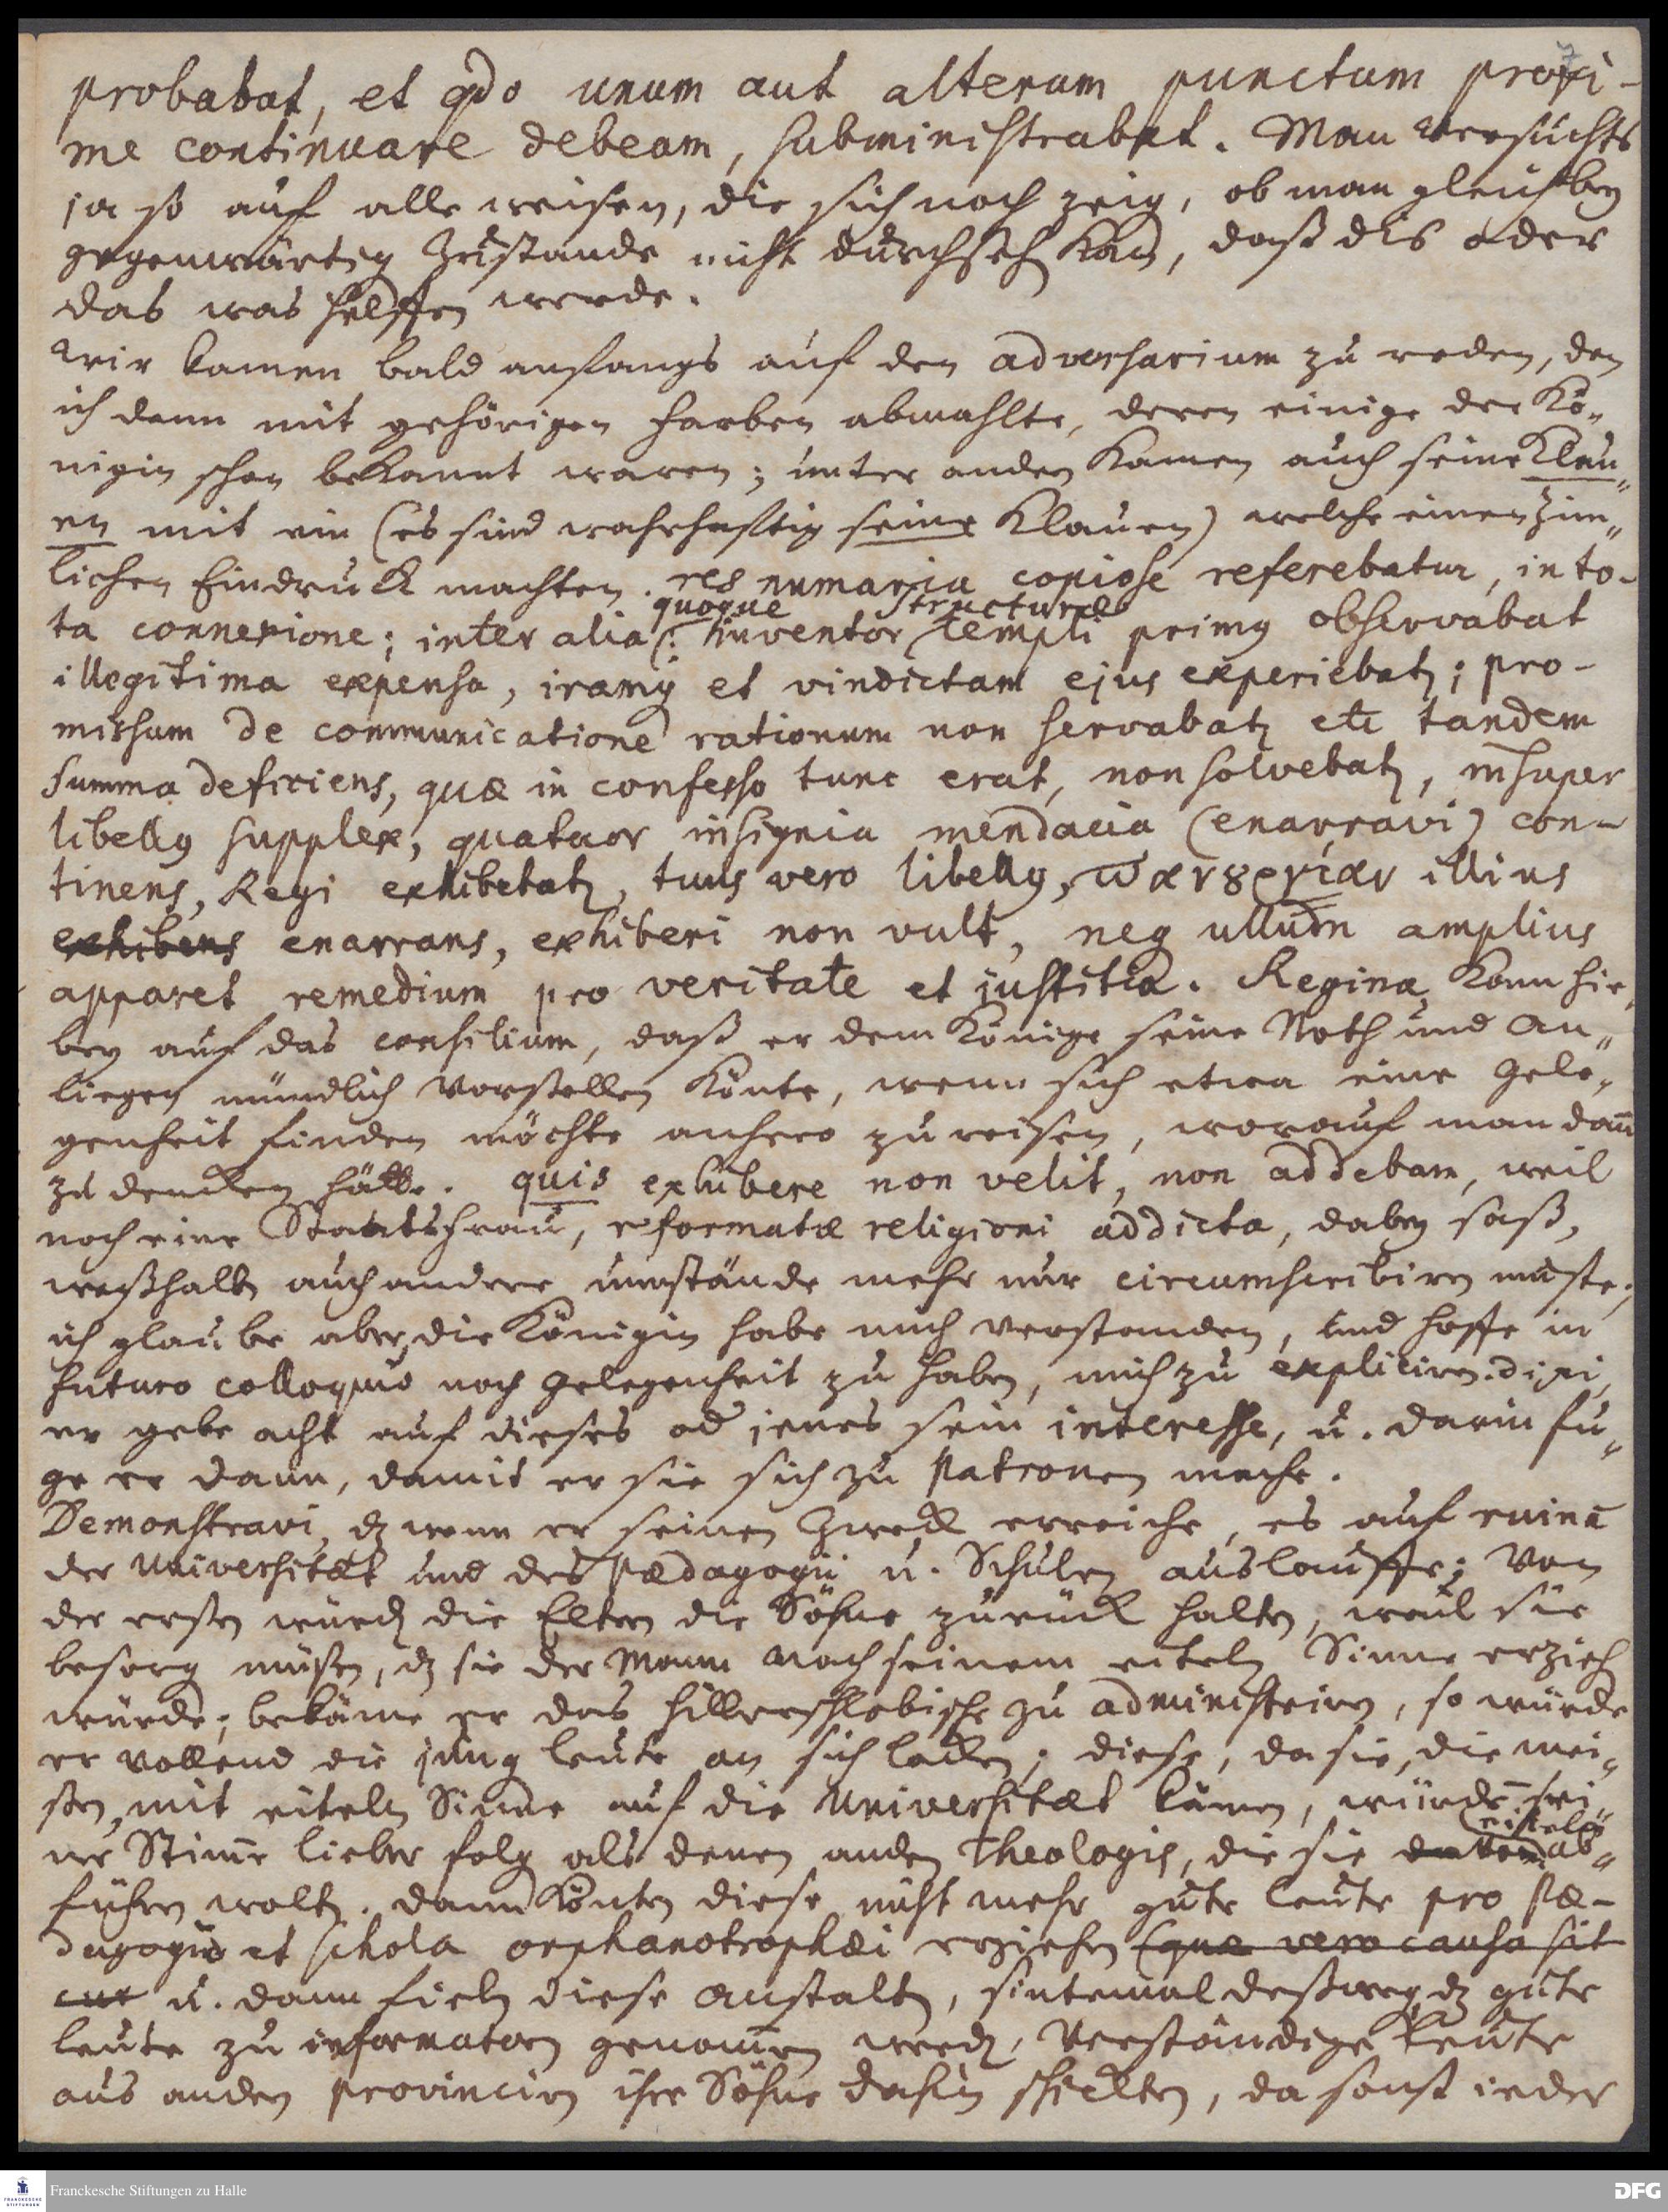 probabat, et qdo unum aut alterum punctum proxi-
me continuare debeam, subministrabat. Man versuchts
ja so auf alle weisen, die sich noch zeig, ob man gleich bey
gegenwärtig Zustande nicht durchseh kan, daß dis oder
das was helffen werde.
Wir kamen bald anfangs auf den adversarium zu reden, den
ich denn mit gehörigen Farben abmahlte, deren einige der Kö-
nigin schon bekannt waren; unter anden kamen auch seine Klau-
en mit ein (es sind wahrhafftig seine Klauen) welche einen zim-
lichen Eindruck machten. res numaria copiose referebatur, in to-
quoque structuræ
ta connexione; inter alia inventor templi primg observabat
illegitima expensa, iramq et vindictam ejus experiebatz; pro-
missum de communicatione rationum non servabatz etc tandem
summa deficiens, quæ in confesso tunc erat, non solvebatz, insuper
libellg supplex, quatuor insignia mendacia (enarravi) con-
tinens, Regi exhibebatz, tuus vero libellg, πανουργίαν illius
exhibens enarrans, exhiberi non vult, neq ullum amplius
apparet remedium pro veritate et justitia. Regina kam hie-
bey auf das consilium, daß er dem Könige seine Noth und An-
liegen mündlich vorstellen könte, wenn sich etwa eine Gele-
genheit finden möchte anhero zu reisen, worauf man dañ
zu dencken hätte. quis exhibere non velit, non addebam, weil
noch eine Staatsfrau, reformatæ religioni addicta, dabey saß,
weßhalb auch andere umstände mehr nur circumscribiren muste;
ich glaube aber, die Königin habe mich verstanden, und hoffe in
futuro colloquio noch Gelegenheit zu haben, mich zu expliciren. dixi,
er gebe acht auf dieses od jenes sein interesse, u. darin fü-
ge er dann, damit er sie sich zu Patronen mache.
Demonstravi, dz wenn er seinen Zweck erreiche, es auf ruinā
der Universitæt und des Pædagogii u. Schulen auslauffe; Von
der ersten würdz die Eltern die Söhne zurück halten, weil sie
besorg müßen, dz sie der Mann nach seinem eiteln Sinne erzieh
würde; bekäme er das hillerschlebische zu administriren, so würde
er vollend die jung leute an sich locken; diese, da sie, die mei-
sten, mit eiteln Sinne auf die Universitæt kämen, würdē sei-
eiteln
ner Stim̄e lieber folg als denen anden Theologis, die sie ab-
führen woltz. dann könten diese nicht mehr gute leute pro Pæ-
dagogio et schola orphanotrophæi erziehen (quæ vero causa sit
cur u. dann fieln diese Anstaltz, sintemal deßweg, dz gute
leute zu informatorn genom̄en werdz, verständige leute
aus anden provincien ihre Söhne dahin schickten, da sonst ieder
Franckesche Stiftungen zu Halle
DFG